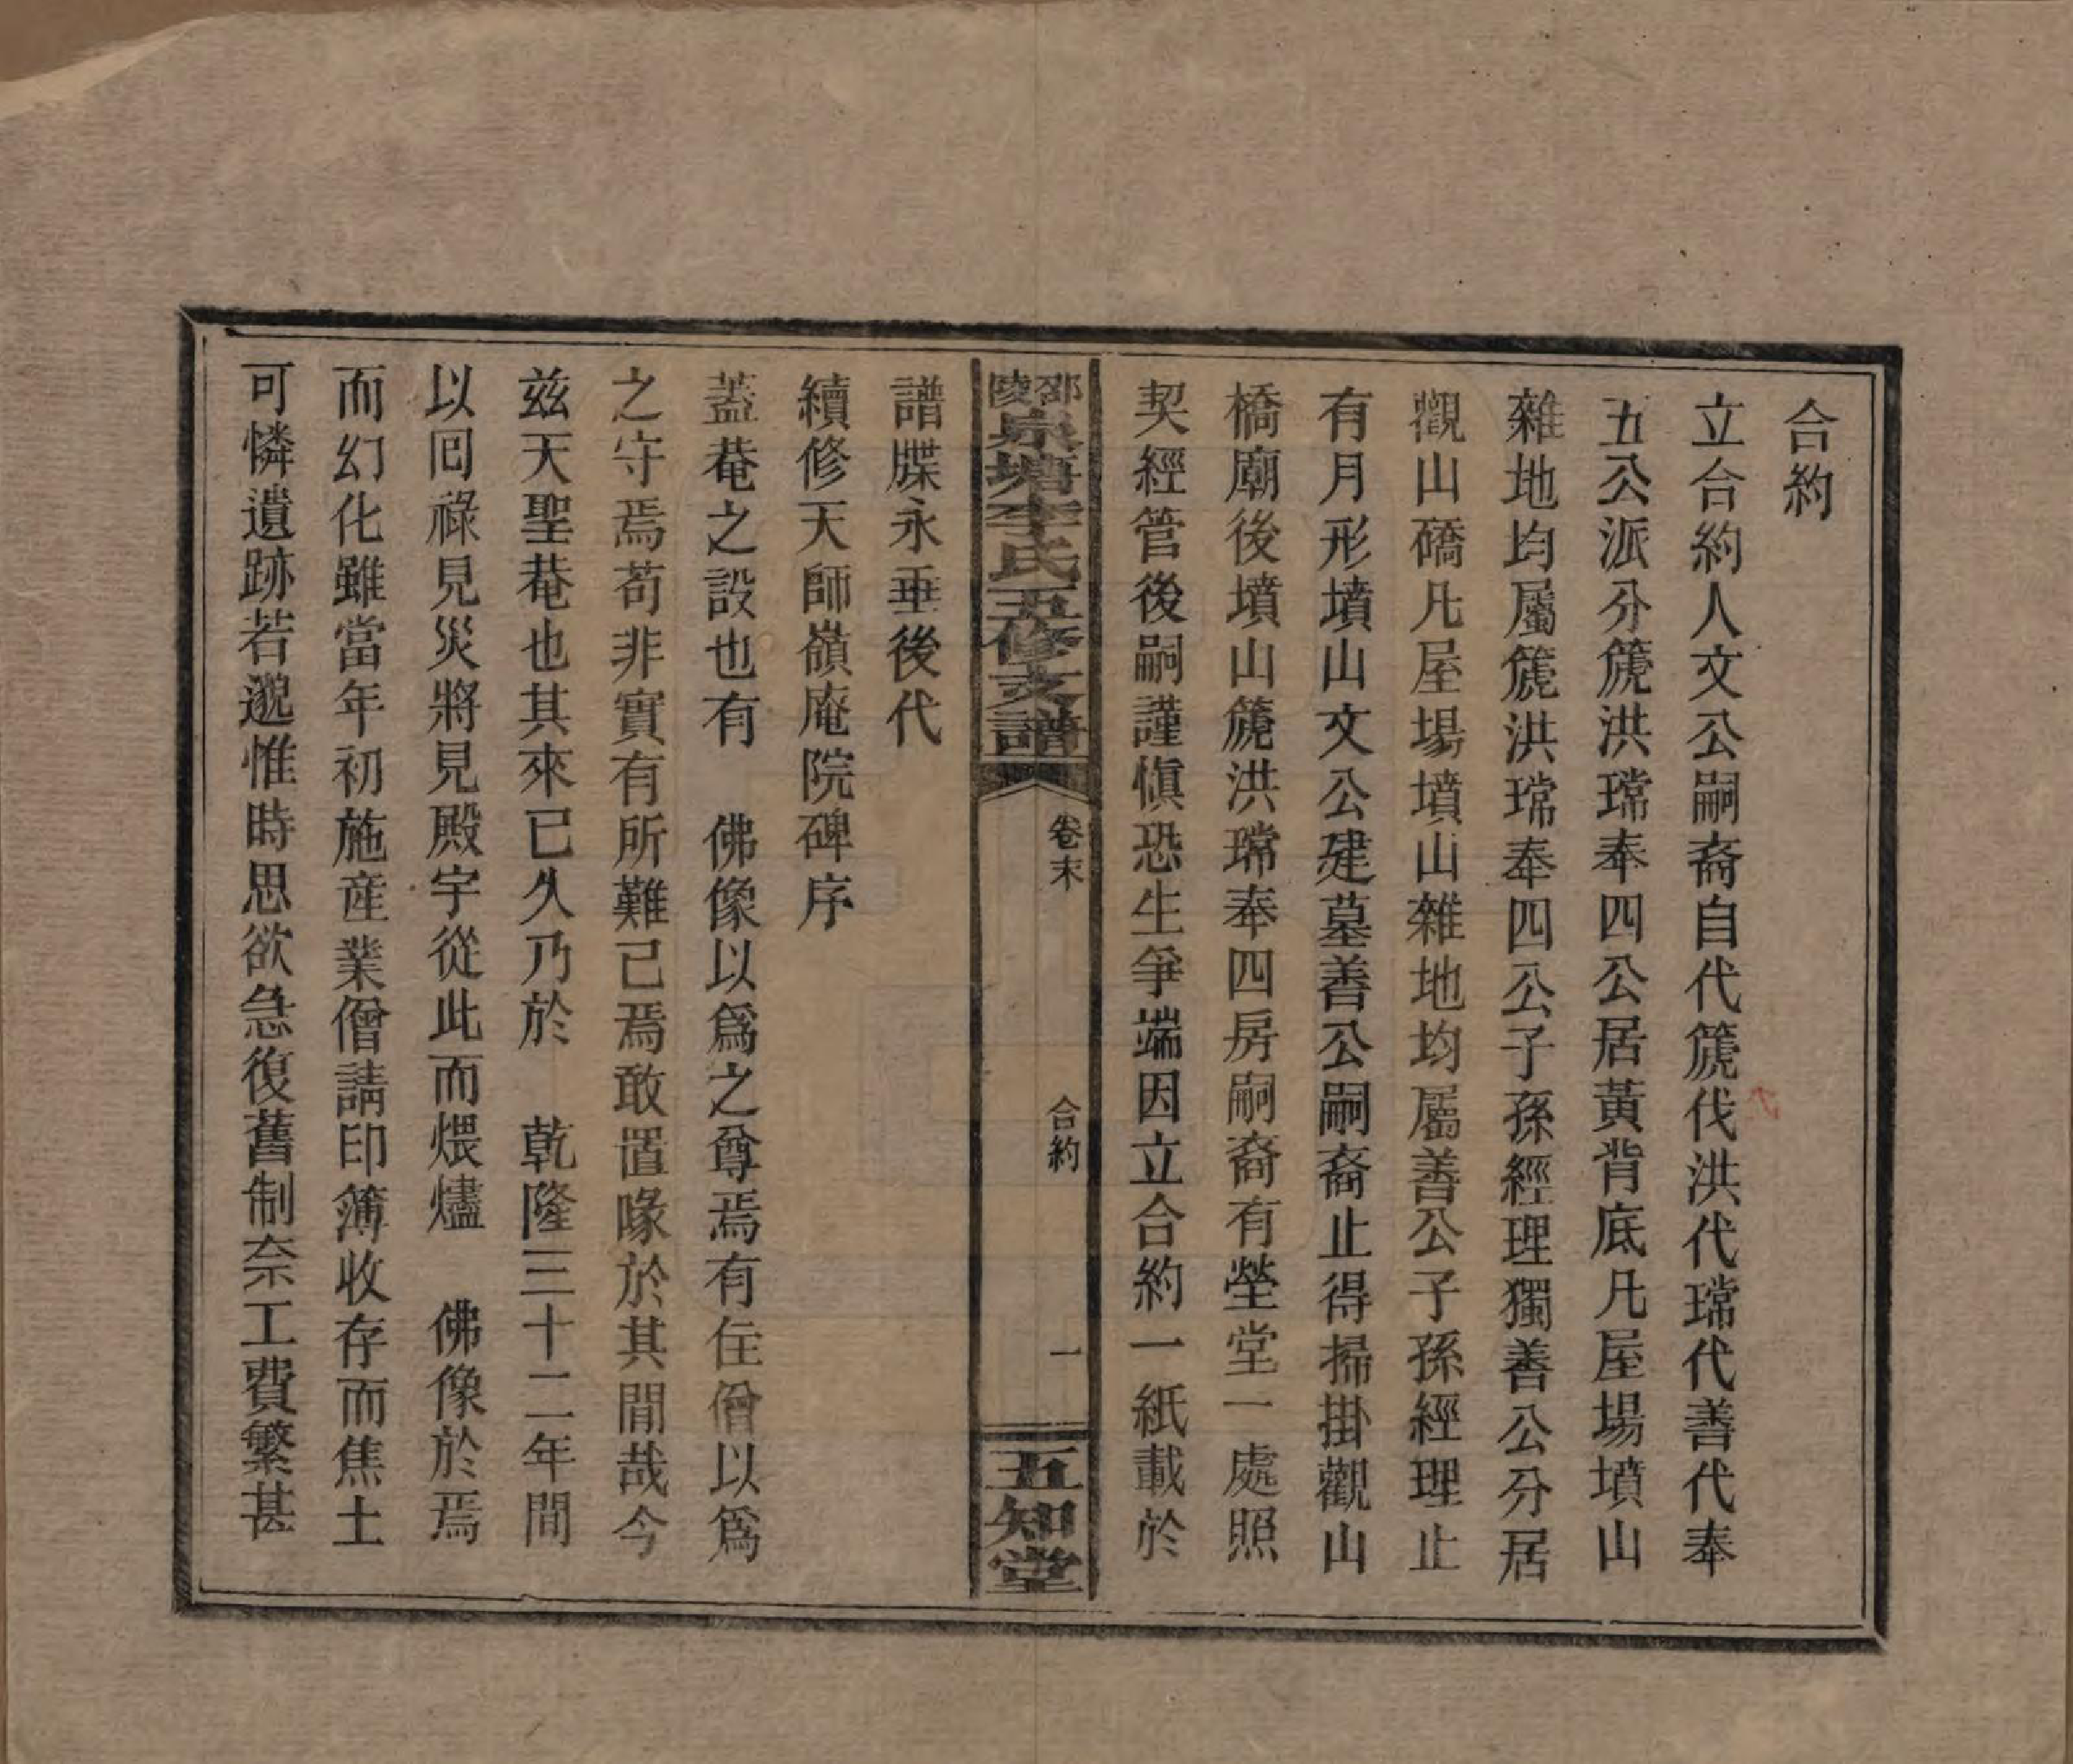 合約
立合約人文公嗣裔自代篪伐洪代瑺代善代奉
五公派分篪洪瑺奉四公居黃背底凡屋場墳山
雜地均屬篪洪瑺奉四公子孫經理獨善公分居
觀山礄凡屋場墳山雜地均屬善公子孫經理止
有月形墳山文公建墓善公嗣裔止得掃掛觀山
橋廟後墳山篪洪瑺奉四房嗣裔有塋堂一處照
契經管後嗣謹愼恐生爭端因立合約一紙載於
邵陵泉塘李氏五修支譜 卷末 合約 一 五知堂
譜牒永垂後代
續修天師嶺庵院碑序
蓋菴之設也有 佛像以爲之尊焉有住僧以爲
之守焉苟非實有所難已焉敢置喙於其間哉今
兹天聖菴也其來已久乃於 乾隆三十二年間
以囘祿見災將見殿宇從此而煨燼 佛像於焉
而幻化雖當年初施産業僧請印簿收存而焦土
可憐遺跡若邈惟時思欲急復舊制奈工費繁甚